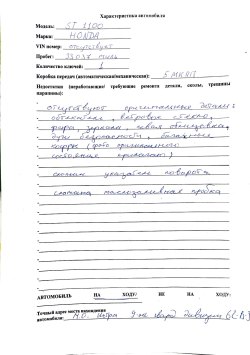 Характеристика автомобиля
Модель: ST 1100
Марка: HONDA
VIN номер: отсутствует
Пробег: 33037 миль
Количество ключей: 1
Коробка передач (автоматическая/механическая): 5 МКПП
Недостатки (неработающие/ требующие ремонта детали, сколы, трещины
царапины):
отсутствуют оригинальные детали:
обтекатели, ветровое стекло,
фара, зеркала, левая облицовка,
дуги безопасности, багажные
кофры (фото
состояние прилагают)
сломан указатель поворота
сломана маслозаливная пробка
АВТОМОБИЛЬ НА ХОДУ/ НЕ НА ХОДУ:
Точный адрес места нахождения
автомобиля: М.О. гвард дивизии